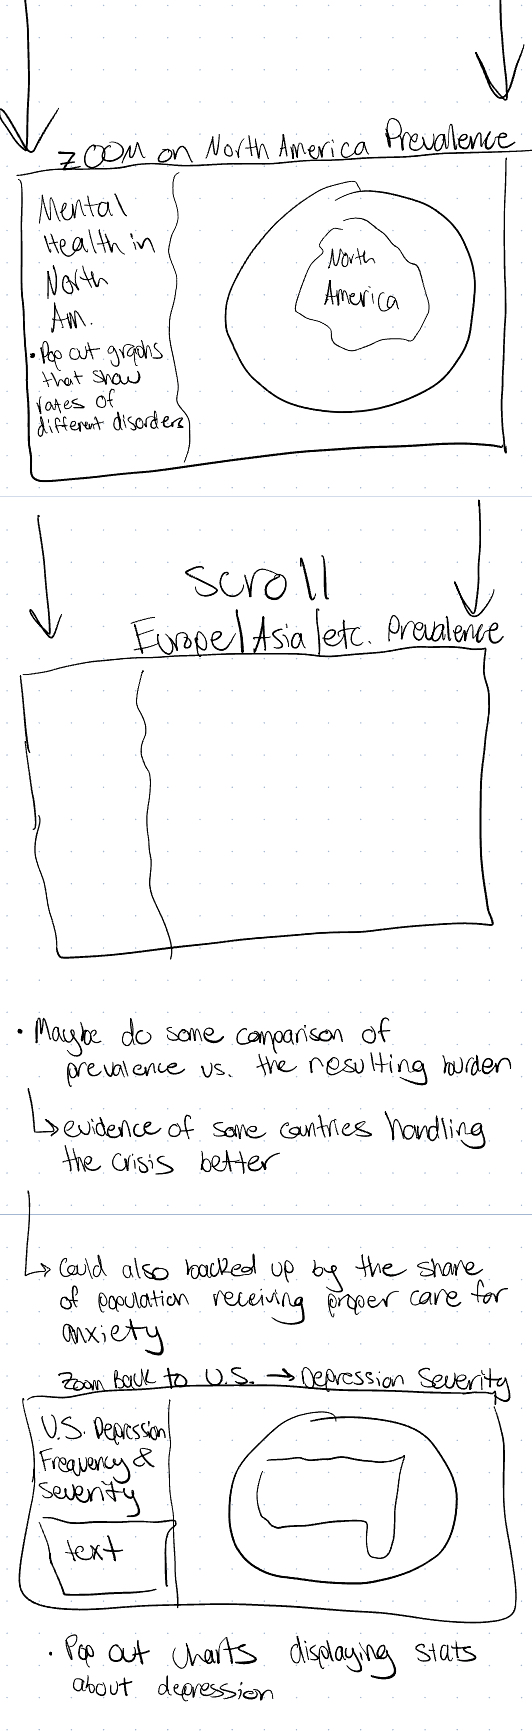 ZOOM on North America Prevalence
Mental
Health in
North
Am.
• Pop out graphs
that show
rates of
different disorders
North
America
Scroll
Europe/Asia/etc. Prevalence
• Maybe do some comparison of
prevalence vs. the resulting burden
↳ evidence of some countries handling
the crisis better
↳ Could also backed up by the share
of population receiving proper care for
anxiety
Zoom Back to U.S. → Depression Severity
U.S. Depression
Frequency &
Severity
text
• Pop out charts displaying stats
about depression